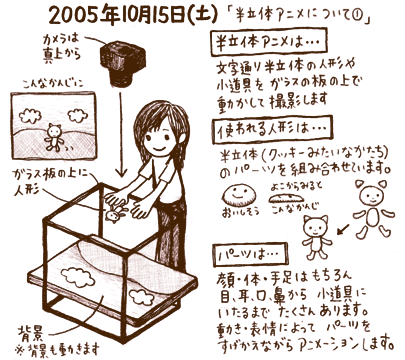 2005年10月15日(土)「半立体アニメについて①」
カメラは
真上から
こんなかんじに
ガラス板の上に
人形
背景
※背景も動きます
半立体アニメは…
文字通り半立体の人形や
小道具をガラスの板の上で
動かして撮影します
使われる人形は…
半立体(クッキーみたいなかたち)
のパーツを組み合わせています。
おいしそう
よこからみると
こんなかんじ
パーツは…
顔・体・手足はもちろん
目、耳、口、鼻から 小道具に
いたるまで たくさんあります。
動き・表情によって パーツを
すげかえながら アニメーションします。